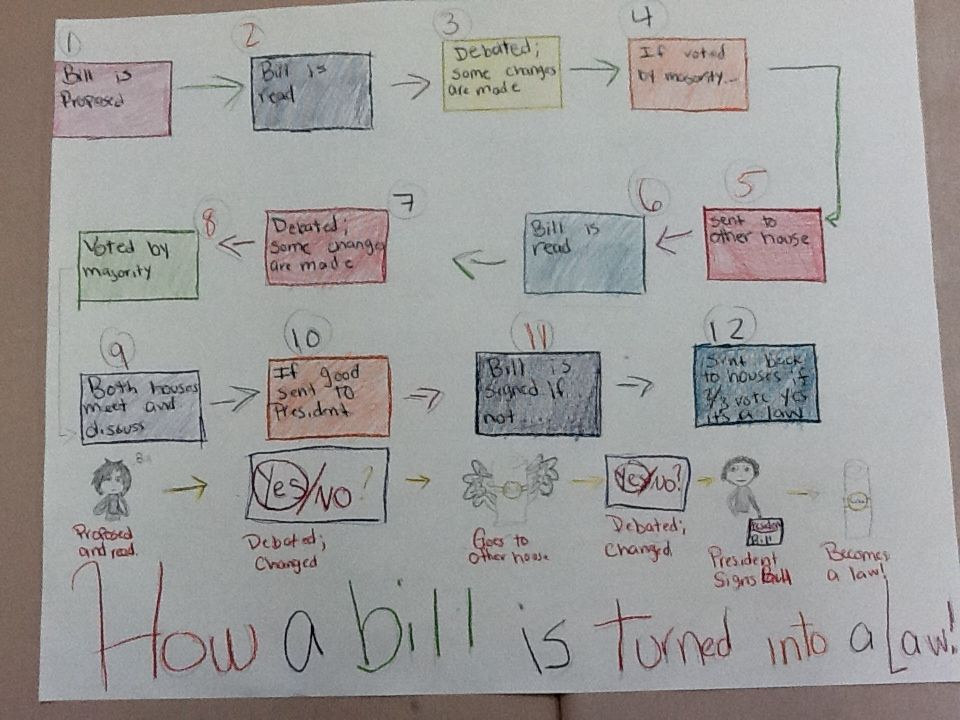 1
Bill is
Proposed
2
Bill is
read
3
Debated;
some changes
are made
4
If voted
by majority...
5
sent to
other house
6
Bill is
read
7
Debated;
some changes
are made
8
Voted by
majority
9
Both houses
meet and
discuss
10
If good
sent to
President
11
Bill is
signed if
not....
12
Sent back
to houses if
2/3 vote yes
its a law
Proposed
and read.
Yes/NO?
Debated;
Changed
Goes to
Other house
Yes/NO?
Debated;
Changed
Bill
President
Signs Bill
Becomes
a law!
How a bill is Turned into a Law!